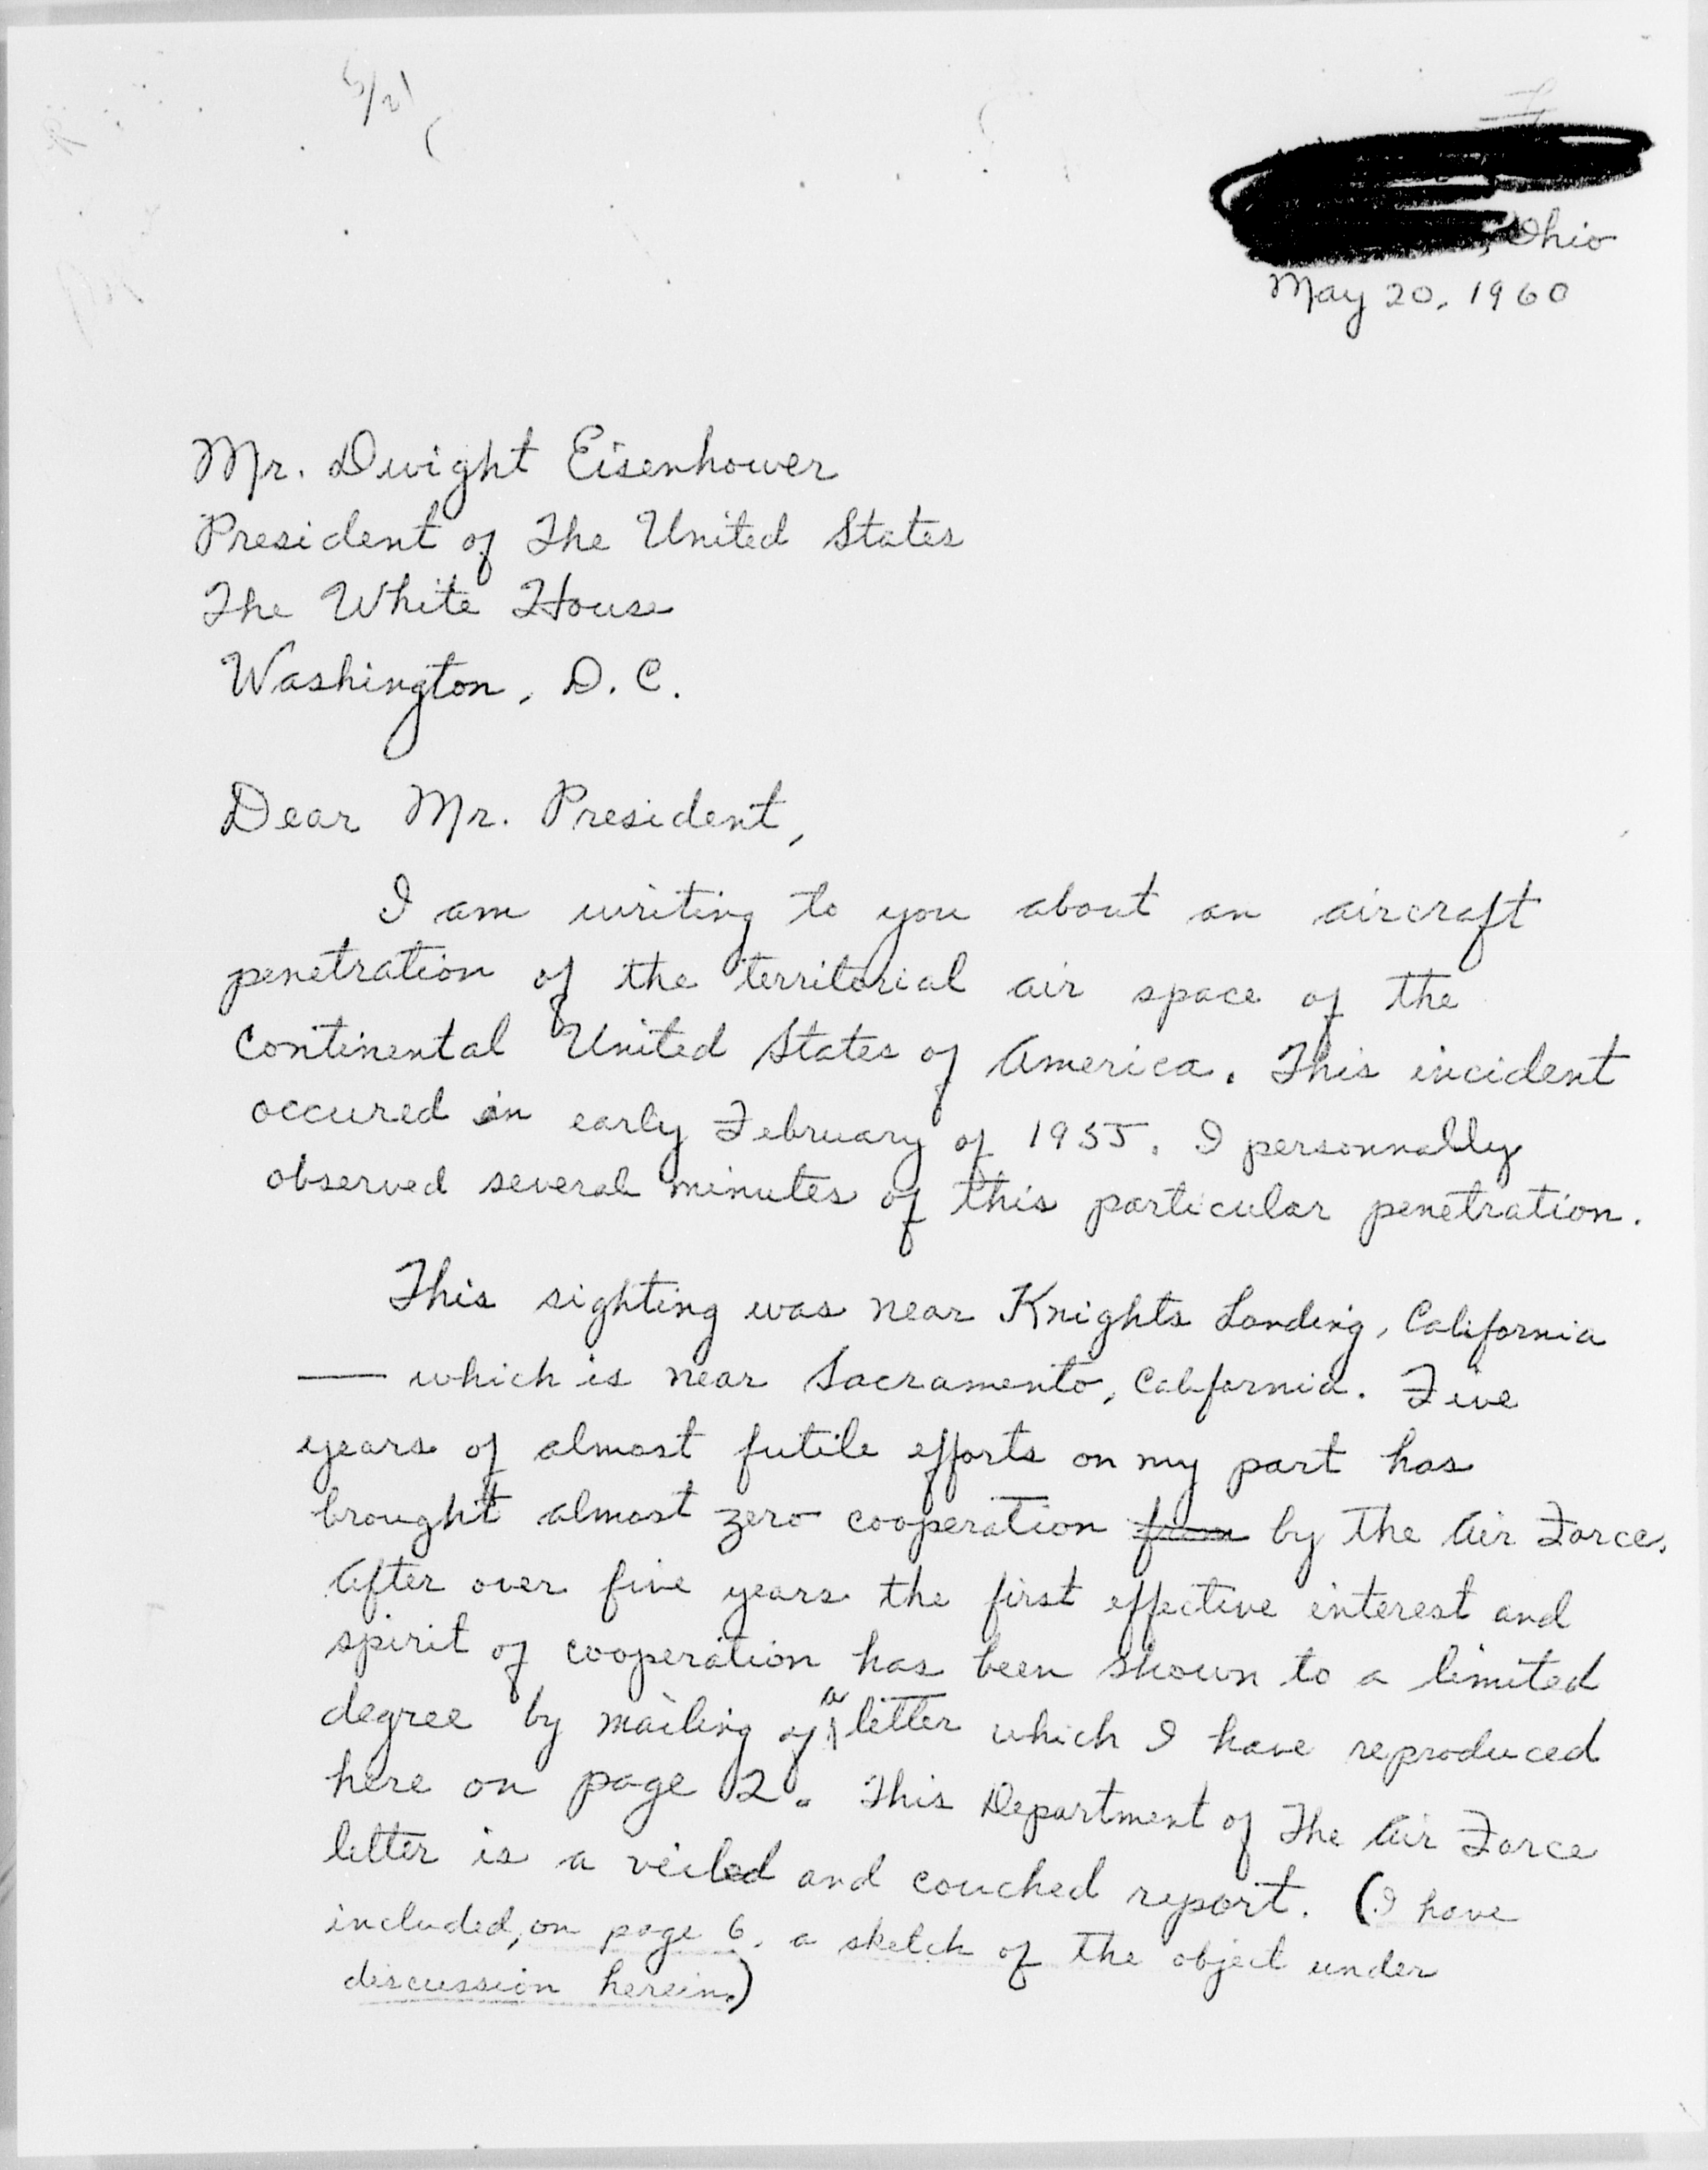 5/21
, Ohio
May 20, 1960
Mr. Dwight Eisenhower
President of The United States
The White House
Washington, D. C.
Dear Mr. President,
I am writing to you about an aircraft
penetration of the territorial air space of the
Continental United States of America. This incident
occured in early February of 1955. I personnally
observed several minutes of this particular penetration.
This sighting was near Knights Landing, California
— which is near Sacramento, California. Five
years of almost futile efforts on my part has
brought almost zero cooperation from by the Air Force.
After over five years the first effective interest and
spirit of cooperation has been shown to a limited
degree by mailing of a letter which I have reproduced
here on page 2. This Department of The Air Force
letter is a veiled and couched report. (I have
included, on page 6, a sketch of the object under
discussion herein.)